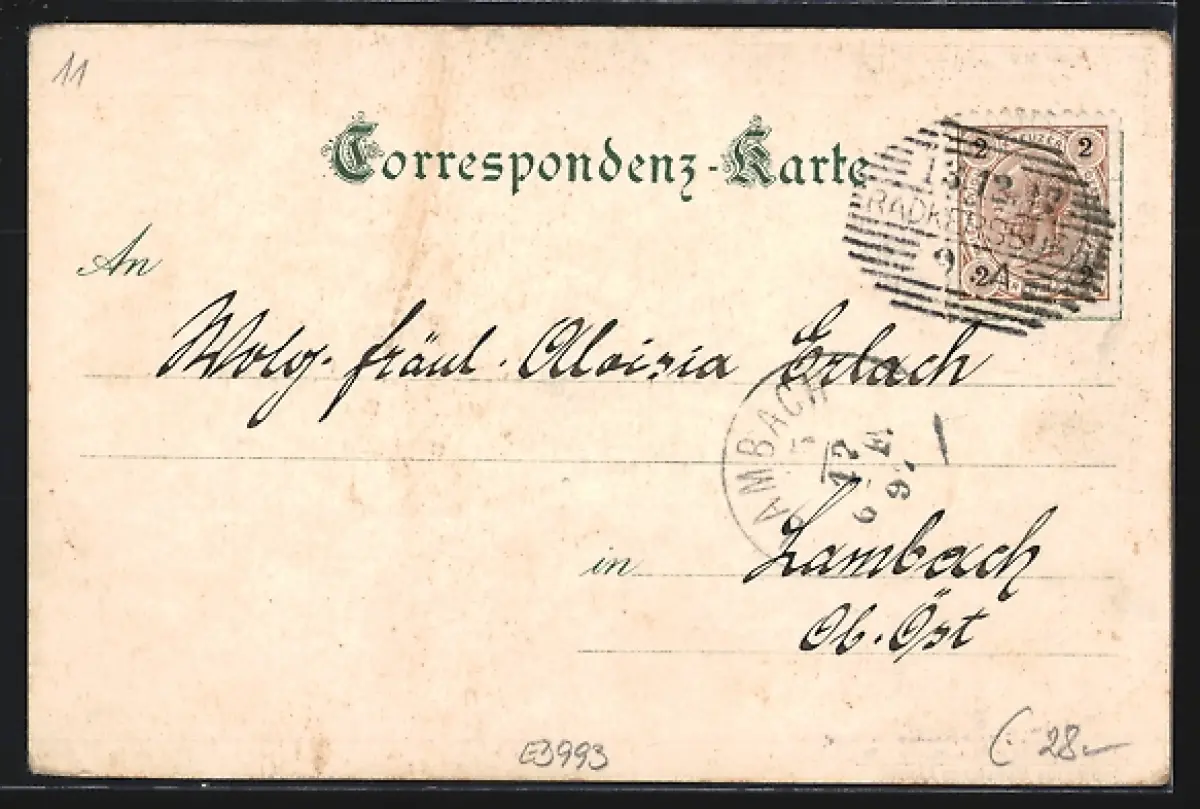 11
Correspondenz-Karte
2 KREUZER 2
13.12.97
RADKERSBURG
9 .2A 2
An
Wolg. Fräul. Aloisia Erlach
AMBACH
12
6-E
97
in Lambach
Ob. Öst
E3993
28-